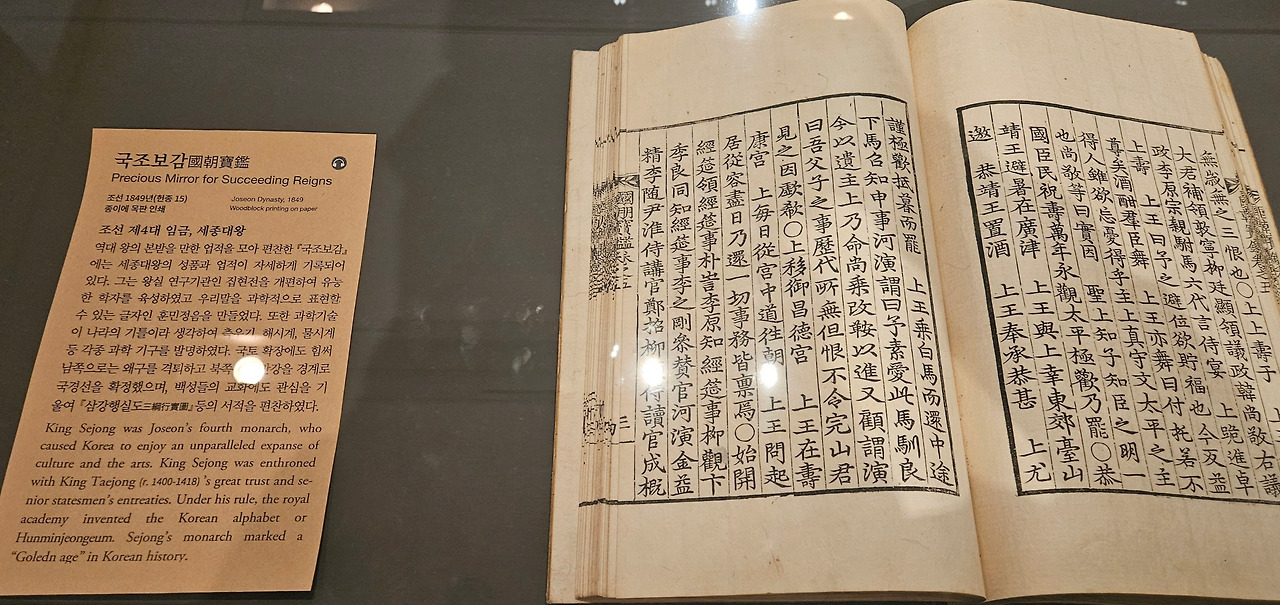 국조보감國朝寶鑑
Precious Mirror for Succeeding Reigns
조선 1849년(헌종 15)
종이에 목판 인쇄
Joseon Dynasty, 1849
Woodblock printing on paper
조선 제4대 임금, 세종대왕
역대 왕의 본받을 만한 업적을 모아 편찬한 『국조보감』
에는 세종대왕의 성품과 업적이 자세하게 기록되어
있다. 그는 왕실 연구기관인 집현전을 개편하여 유능
한 학자를 육성하였고 우리말을 과학적으로 표현할
수 있는 글자인 훈민정음을 만들었다. 또한 과학기술
이 나라의 기틀이라 생각하여 측우기, 해시계, 물시계
등 각종 과학 기구를 발명하였다. 국토 확장에도 힘써
남쪽으로는 왜구를 격퇴하고 북쪽 경계로
국경선을 확정했으며, 백성들의 교화에도 관심을 기
울여 『삼강행실도三綱行實圖』등의 서적을 편찬하였다.
King Sejong was Joseon's fourth monarch, who
caused Korea to enjoy an unparalleled expanse of
culture and the arts. King Sejong was enthroned
with King Taejong (r. 1400-1418)'s great trust and se-
nior statesmen's entreaties. Under his rule, the royal
academy invented the Korean alphabet or
Hunminjeongeum. Sejong's monarch marked a
"Goledn age" in Korean history.
無歲無之三恨也〇上上壽于
大君補領敦寧柳廷顯領議政韓尚敬右議
政李原宗親駙馬六代言侍宴 上跪進卓
上壽 上王曰予之避位欲貯福也今反益
尊矣酒酣群臣舞 上王亦舞曰付托若不
得人雖欲忘憂得乎主上眞守文太平之主
也尚敬等曰實因 聖上知子知臣之明一
國臣民祝壽萬年永觀太平極歡乃罷〇恭
靖王避暑在廣津 上王與上幸東郊臺山
邀 恭靖王置酒 上王奉承恭甚 上尤
謹極歡抵暮而罷 上王乘白馬而還中途
下馬召知申事河演謂曰予素愛此馬馴良
今以遺主上乃命尚乘改鞍以進又顧謂演
曰吾父子之事歷代所無但恨不令完山君
見之因歔欷〇上移御昌德宮 上王在壽
康宮 上每日從宮中道往朝 上王問起
居從容盡日乃還一切事務皆稟焉〇始開
經筵領經筵事朴訔李原知經筵事柳觀卞
季良同知經筵事李之剛參贊官河演金益
精李隨尹淮侍講官鄭招柳 侍讀官成槪